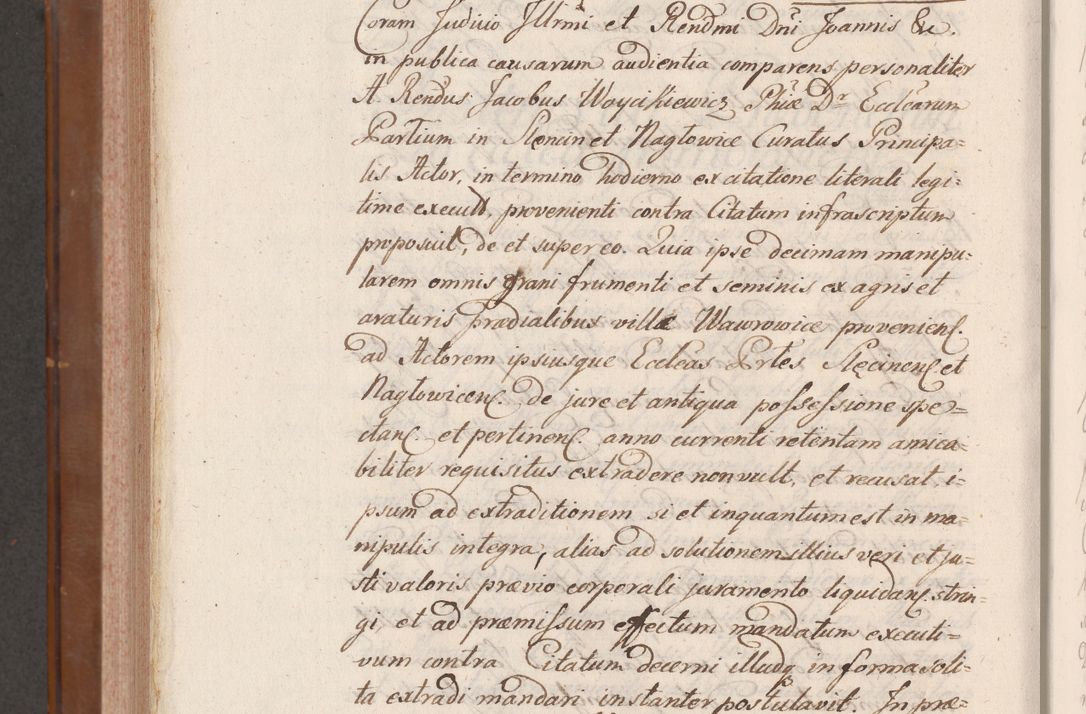 Coram Judicio Illrmi et Rendmi Dni Joannis Ec.
in publica causarum audientia comparens personaliter
A. Rendus Jacobus Woycikiewicz Phiæ Dr Ecclearum
Partium in Slencin et Nagłowice Curatus Principa=
lis Actor, in termino hodierno ex citatione literali legi:
time execut, provenienti contra Citatum infrascriptum
proposuit, de et super eo. Quia ipse decimam manipu:
larem omnis grani frumenti et seminis ex agris et
araturis prædialibus villæ Wawrowice provenien.
ad Actorem ipsiusque Eccleas Prtes Slęcinen et
Nagłowicen. de jure et antiqua possessione spe=
ctan. et pertinen. anno currenti retentam amica=
biliter requisitus extradere non vult, et recusat, i=
psum ad extraditionem si et inquantum est in ma=
nipulis integra, alias ad solutionem illius veri et ju=
sti valoris prævio corporali juramento liquidan. strin=
gi, et ad præmissum effectum mandatum executi=
vum contra Citatum decerni illudq in forma soli=
ta extradi mandari instanter postulavit. In præ=